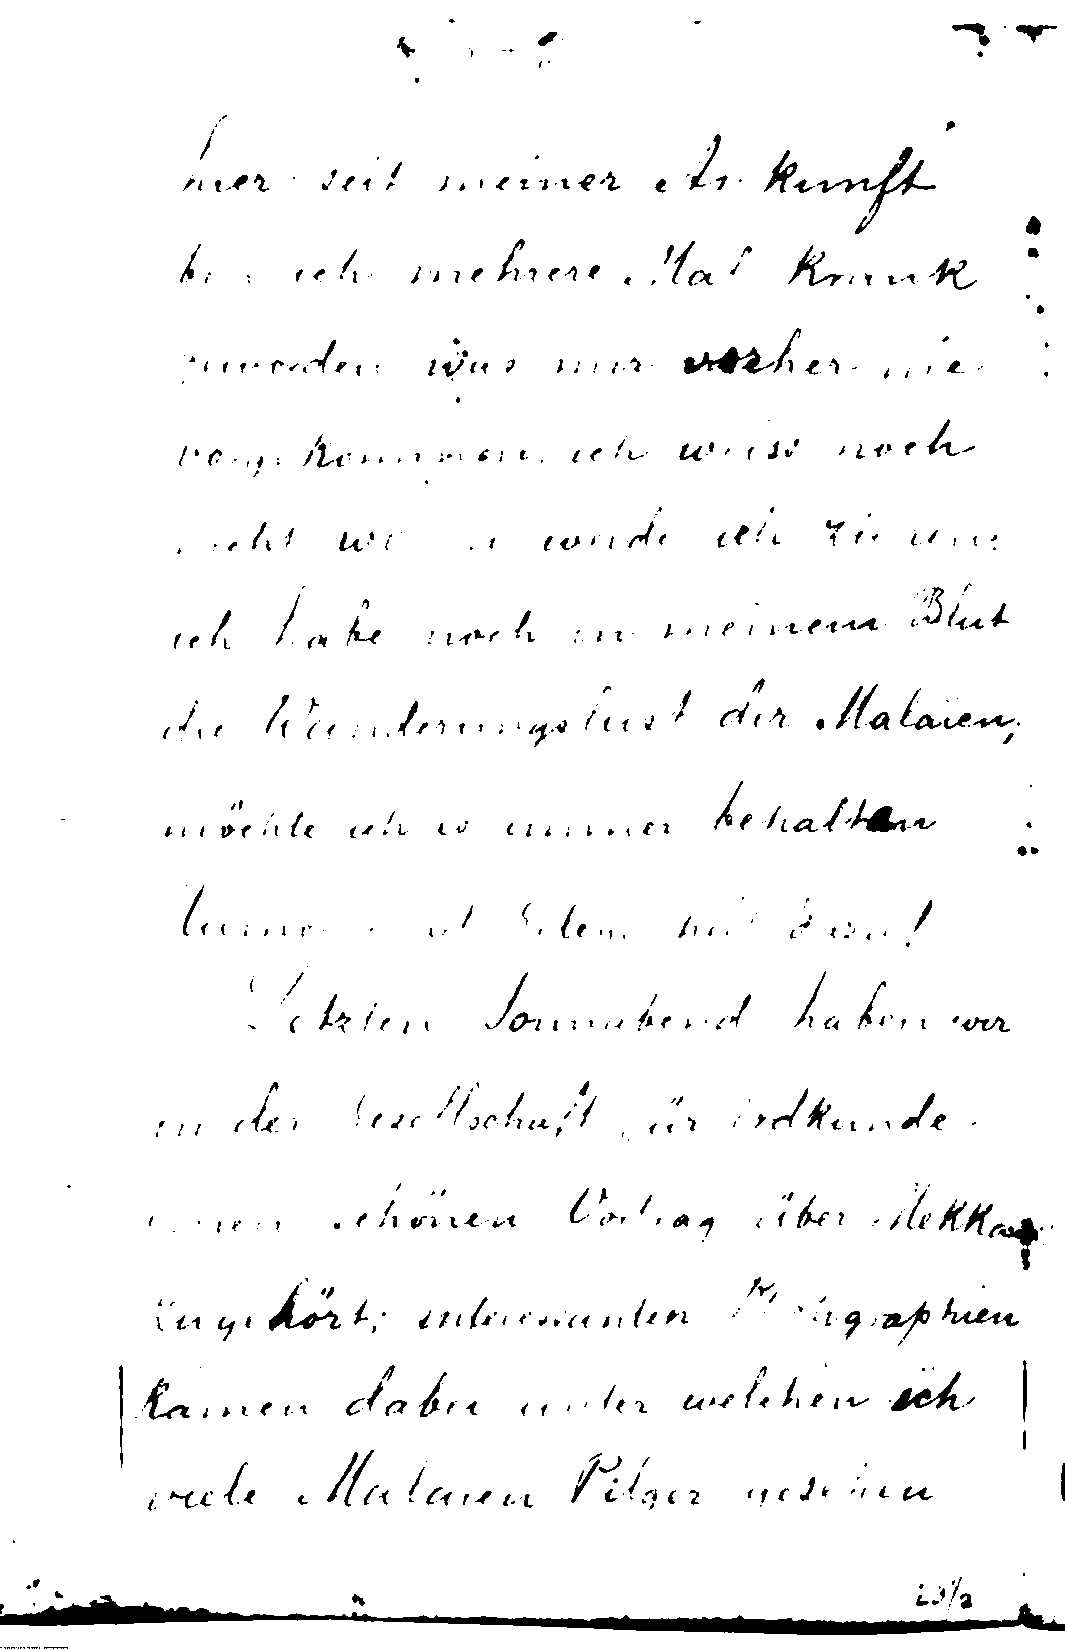 hier seit meiner Ankunft
bin ich mehrere Mal krank
geworden was mir vorher nie
vorgekommen. ich weiss noch
nicht wo werde ich
ich habe noch in meinem Blut
die Wanderungslust der Malaien,
möchte ich es immer behalten

Letzten Sonnabend haben wir
in der Gesellschaft für Erdkunde
einen schönen Vortrag über Mekka
zugehört; interessanten Photographien
kamen dabei unter welchen ich
viele Malaien Pilger gesehen